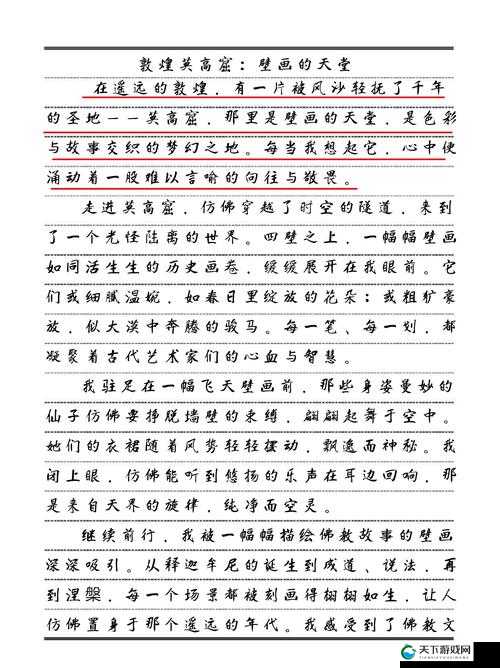 敦煌莫高窟：壁画的天堂
在遥远的敦煌，有一片被风沙轻抚了千年
的圣地——莫高窟，那里是壁画的天堂，是色彩
与故事交织的梦幻之地。每当我想起它，心中便
涌动着一股难以言喻的向往与敬畏。
走进莫高窟，仿佛穿越了时空的隧道，来到
了一个光怪陆离的世界。四壁之上，一幅幅壁画
如同活生生的历史画卷，缓缓展开在我眼前。它
们或细腻温婉，如春日里绽放的花朵；或粗犷豪
放，似大漠中奔腾的骏马。每一笔、每一划，都
凝聚着古代艺术家们的心血与智慧。
我驻足在一幅飞天壁画前，那些身姿曼妙的
仙子仿佛要挣脱墙壁的束缚，翩翩起舞于空中。
她们的衣裙随着风势轻轻摆动，飘逸而神秘。我
闭上眼，仿佛能听到悠扬的乐声在耳边回响，那
是来自天界的旋律，纯净而空灵。
继续前行，我被一幅幅描绘佛教故事的壁画
深深吸引。从释迦牟尼的诞生到成道、说法，再
到涅槃，每一个场景都被刻画得栩栩如生，让人
仿佛置身于那个遥远的年代。我感受到了佛教文
天下游戏网